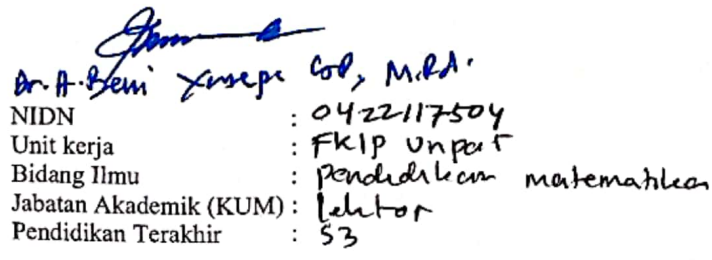 Dr. H. Beni Yusepa G.P, M.Pd.
NIDN : 0422117504
Unit kerja : FKIP Unpas
Bidang Ilmu : Pendidikan matematika
Jabatan Akademik (KUM) : Lektor
Pendidikan Terakhir : S3